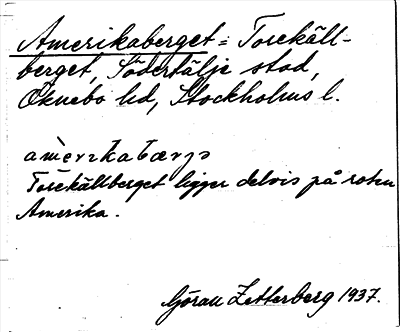 Amerikaberget = Torekäll-
berget, Södertälje stad,
Öknebo hd, Stockholms l.
amerikabærjə
Torekällberget ligger delvis på roten
Amerika.
Göran Zetterberg 1937.